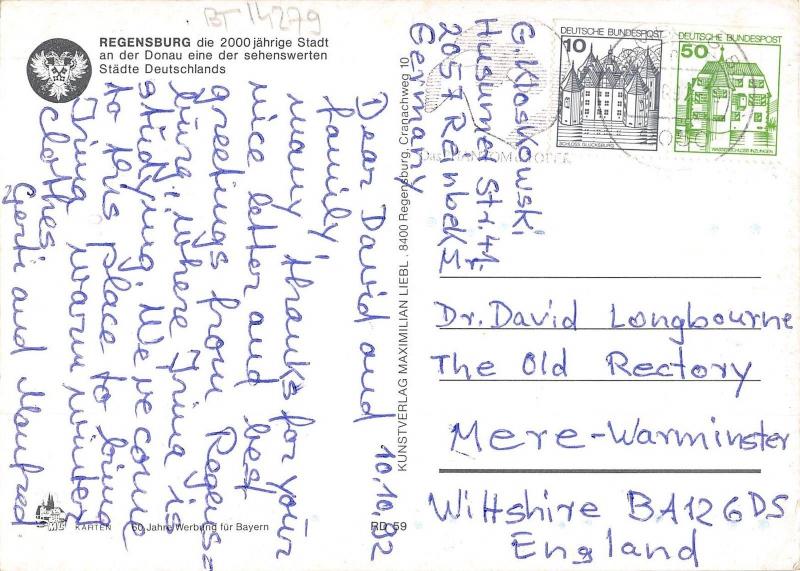 BT 14279
REGENSBURG die 2000jährige Stadt
an der Donau eine der sehenswerten
Städte Deutschlands
10.10.82
Dear David and
family,
many thanks for your
nice letter and best
greetings from Regens=
burg, where Irina is
studying. We've come
to this place to bring
Irina warm winter
clothes.
Gerti and Manfred
KUNSTVERLAG MAXIMILIAN LIEBL . 8400 Regensburg, Cranachweg 10
KARTEN 60 Jahre Werbung für Bayern
RD 59
G. Kloskowski
Husumer Str. 41
2057 Reinbek
Germany
DEUTSCHE BUNDESPOST
10
SCHLOSS GLÜCKSBURG
DEUTSCHE BUNDESPOST
50
WASSERSCHLOSS INZLINGEN
Mr.
Dr. David Longbourne
The Old Rectory
Mere-Warminster
Wiltshire BA12 6DS
England